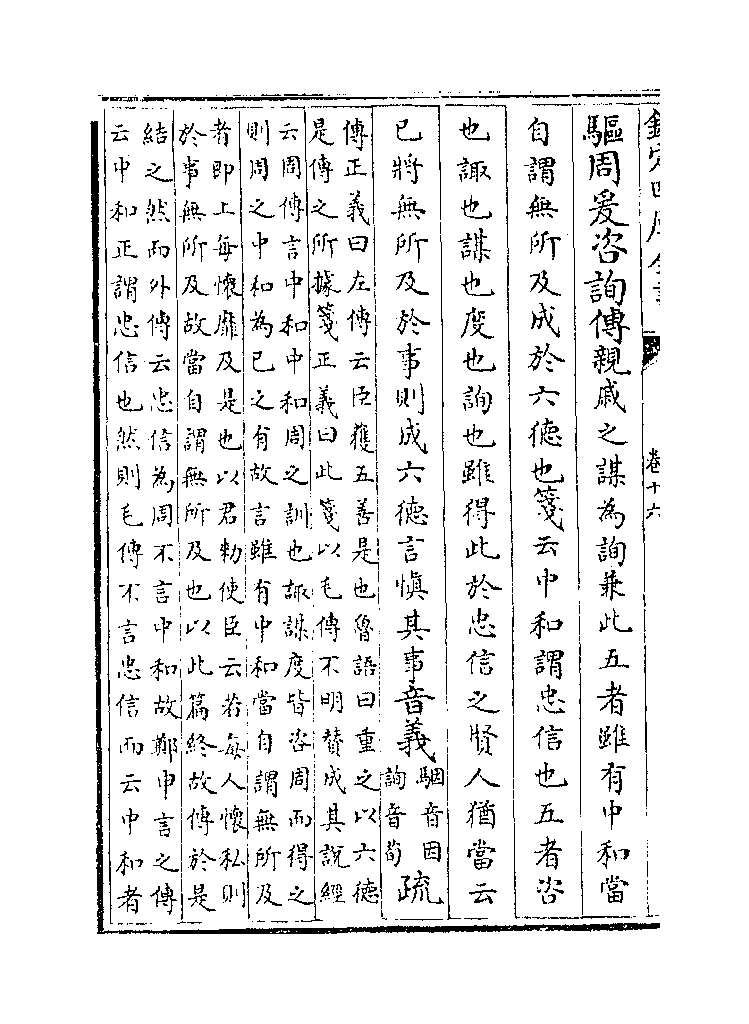 欽定四庫全書
卷十六
驅周爰咨詢傳親戚之謀為詢兼此五者雖有中和當
自謂無所及成於六德也箋云中和謂忠信也五者咨
也諏也謀也度也詢也雖得此於忠信之賢人猶當云
已將無所及於事則成六德言慎其事音義
駰音因
詢音荀
疏
傳正義曰左傳云臣獲五善是也魯語曰重之以六德
是傳之所據箋正義曰此箋以毛傳不明贊成其說經
云周傳言中和中和周之訓也諏謀度皆咨周而得之
則周之中和為已之有故言雖有中和當自謂無所及
者即上每懷靡及是也以君勅使臣云若每人懷私則
於事無所及故當自謂無所及也以此篇終故傳於是
結之然而外傳云忠信為周不言中和故鄭申言之傳
云中和正謂忠信也然則毛傳不言忠信而云中和者